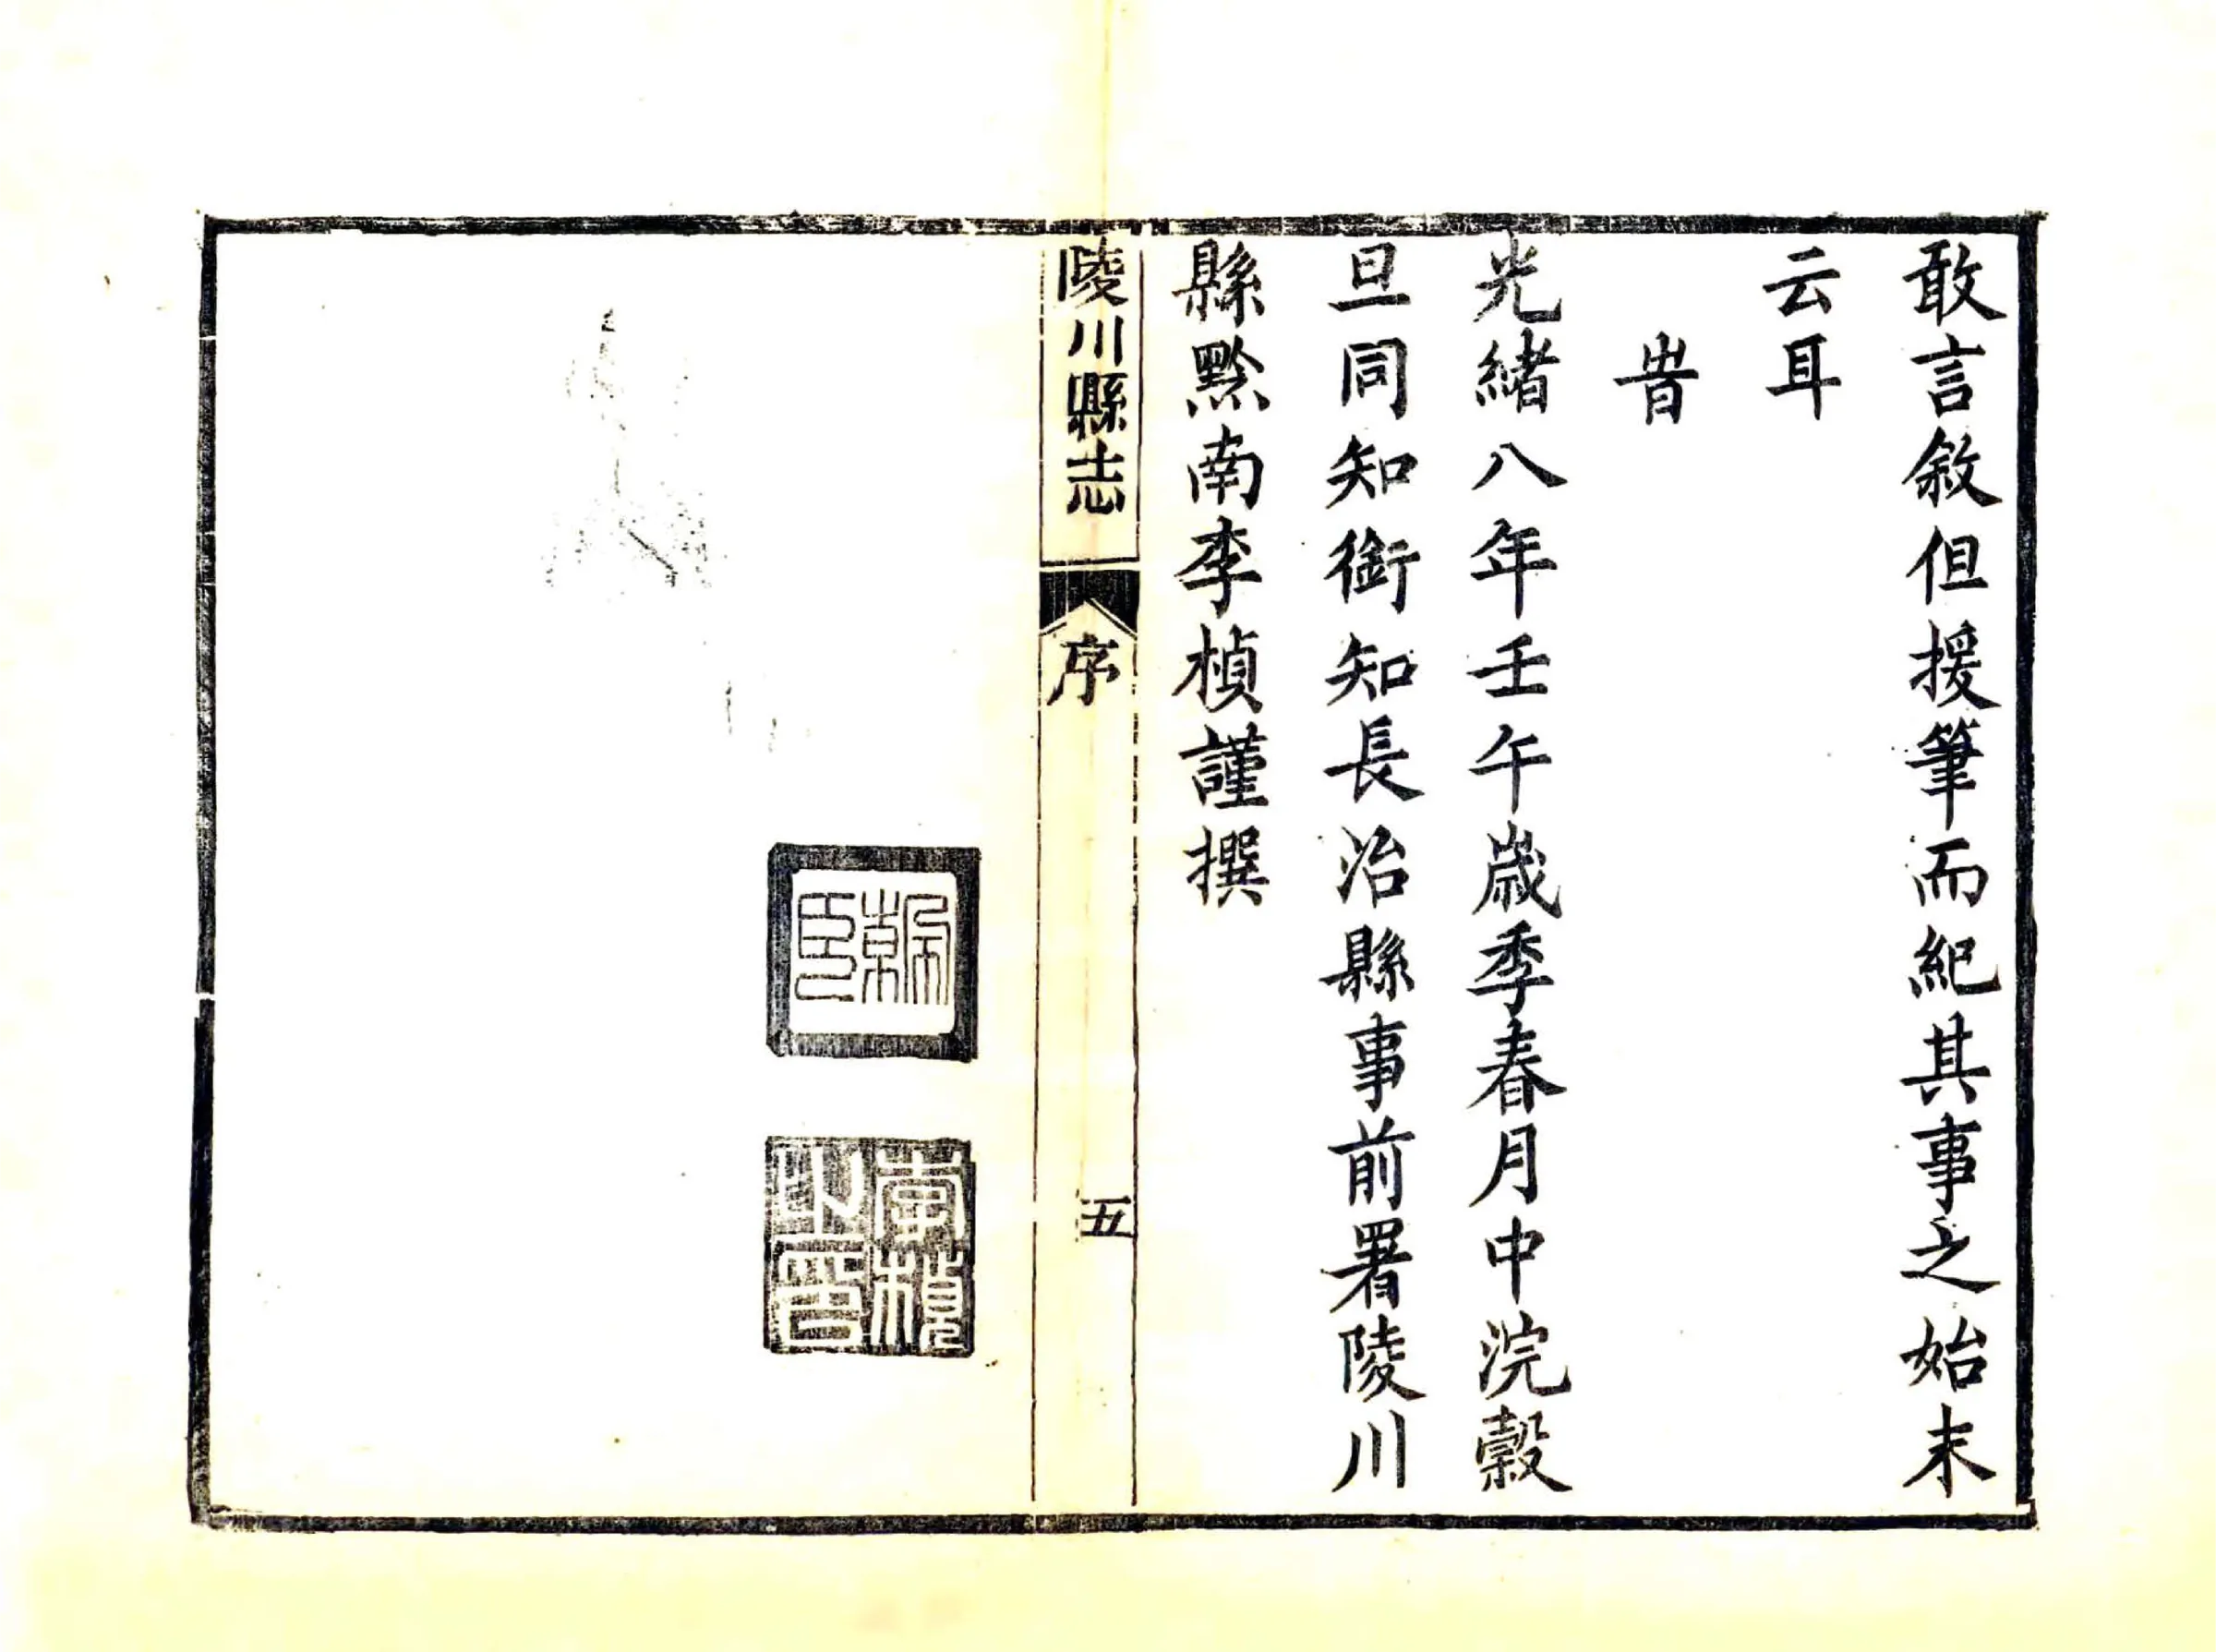 敢言敘但援筆而紀其事之始末
云耳
旹
光緒八年壬午歲季春月中浣穀
旦同知銜知長治縣事前署陵川
縣黔南李楨謹撰
陵川縣志
序
五
榦臣
李楨之印